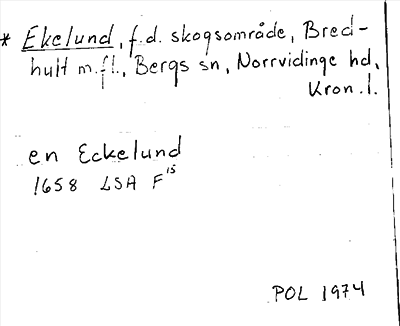 * Ekelund, f.d. skogsområde, Bred-
hult m.fl., Bergs sn, Norrvidinge hd,
Kron. l.
en Eckelund
1658 LSA F 15
POL 1974